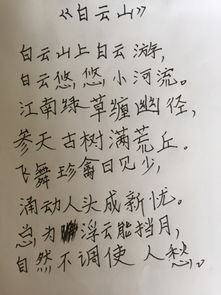 《白云山》
白云山上白云游,
白云悠悠小河流。
江南绿草缠幽径,
参天古树满荒丘。
飞舞珍禽日见少,
涌动人头成新忧。
总为浮云能挡月,
自然不调使人愁。